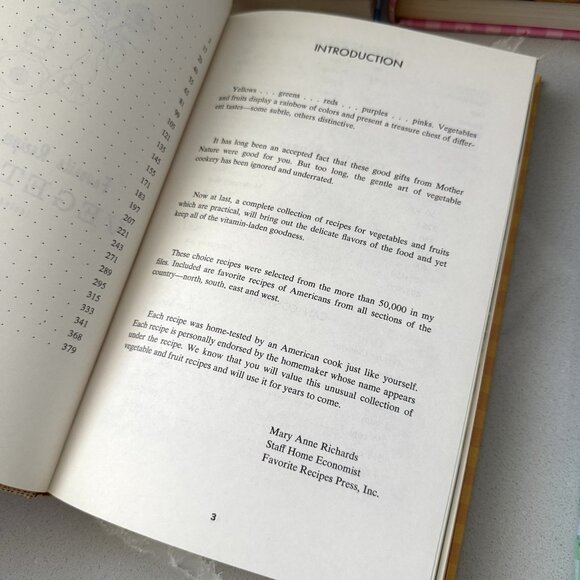 11
26
35
45
81
99
105
121
135
145
155
171
183
197
207
221
243
271
289
295
315
333
341
368
379
INTRODUCTION
Yellows . . . greens . . . reds . . . purples . . . pinks. Vegetables
and fruits display a rainbow of colors and present a treasure chest of differ-
ent tastes—some subtle, others distinctive.
It has long been an accepted fact that these good gifts from Mother
Nature were good for you. But too long, the gentle art of vegetable
cookery has been ignored and underrated.
Now at last, a complete collection of recipes for vegetables and fruits
which are practical, will bring out the delicate flavors of the food and yet
keep all of the vitamin-laden goodness.
These choice recipes were selected from the more than 50,000 in my
files. Included are favorite recipes of Americans from all sections of the
country—north, south, east and west.
Each recipe was home-tested by an American cook just like yourself.
Each recipe is personally endorsed by the homemaker whose name appears
under the recipe. We know that you will value this unusual collection of
vegetable and fruit recipes and will use it for years to come.
Mary Anne Richards
Staff Home Economist
Favorite Recipes Press, Inc.
3